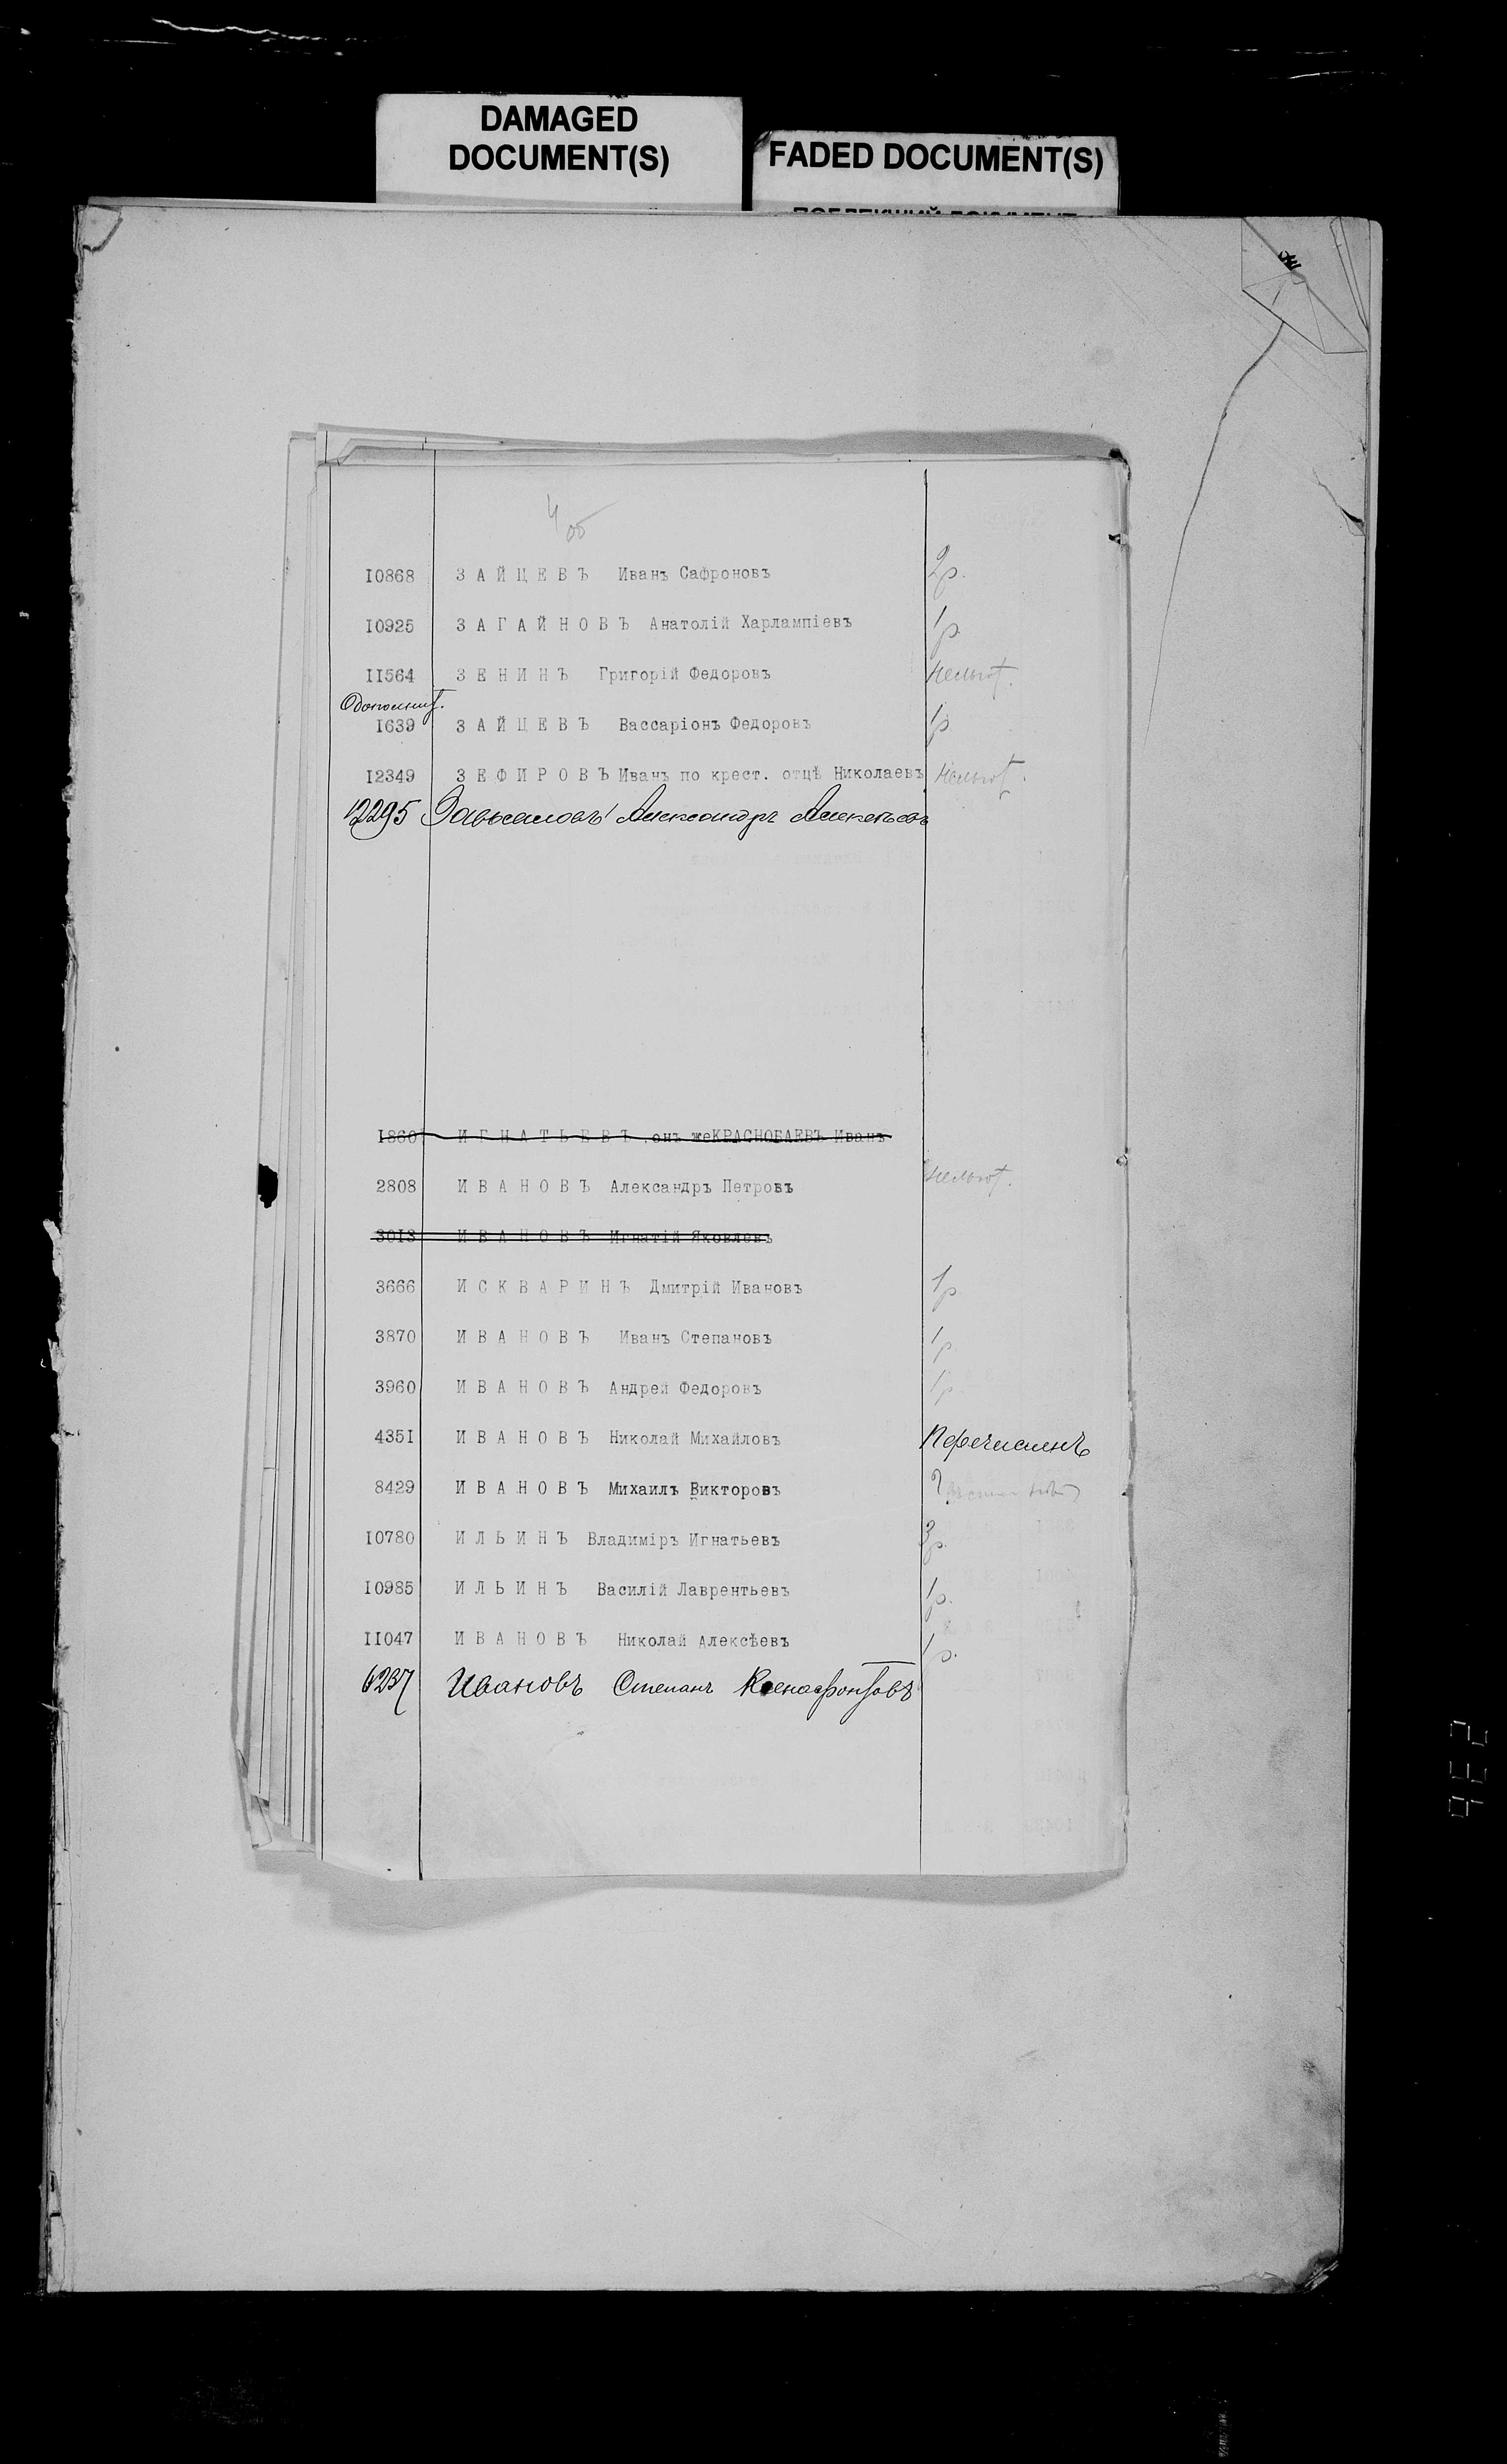 DAMAGED
DOCUMENT(S)
FADED DOCUMENT(S)
4 об
10868 ЗАЙЦЕВЪ Иванъ Сафроновъ 2р.
10925 ЗАГАЙНОВЪ Анатолій Харлампіевъ 1р.
11564 ЗЕНИНЪ Григорій Федоровъ нельгот.
1639 ЗАЙЦЕВЪ Вассаріонъ Федоровъ 1р.
12349 ЗЕФИРОВЪ Иванъ по крест. отцѣ Николаевъ нельгот.
12295 Завьяловъ Александръ Алексѣевъ
1860 ИГНАТЬЕВЪ онъ же КРАСНОБАЕВЪ Иванъ
2808 ИВАНОВЪ Александръ Петровъ нельгот.
3013 ИВАНОВЪ Игнатій Яковлевъ
3666 ИСКВАРИНЪ Дмитрій Ивановъ 1р
3870 ИВАНОВЪ Иванъ Степановъ 1р
3960 ИВАНОВЪ Андрей Федоровъ 1р
4351 ИВАНОВЪ Николай Михайловъ Перечисленъ
8429 ИВАНОВЪ Михаилъ Викторовъ
10780 ИЛЬИНЪ Владиміръ Игнатьевъ 3р.
10985 ИЛЬИНЪ Василій Лаврентьевъ 1р.
11047 ИВАНОВЪ Николай Алексѣевъ 1р.
6237 Ивановъ Степанъ Ксенофонтовъ